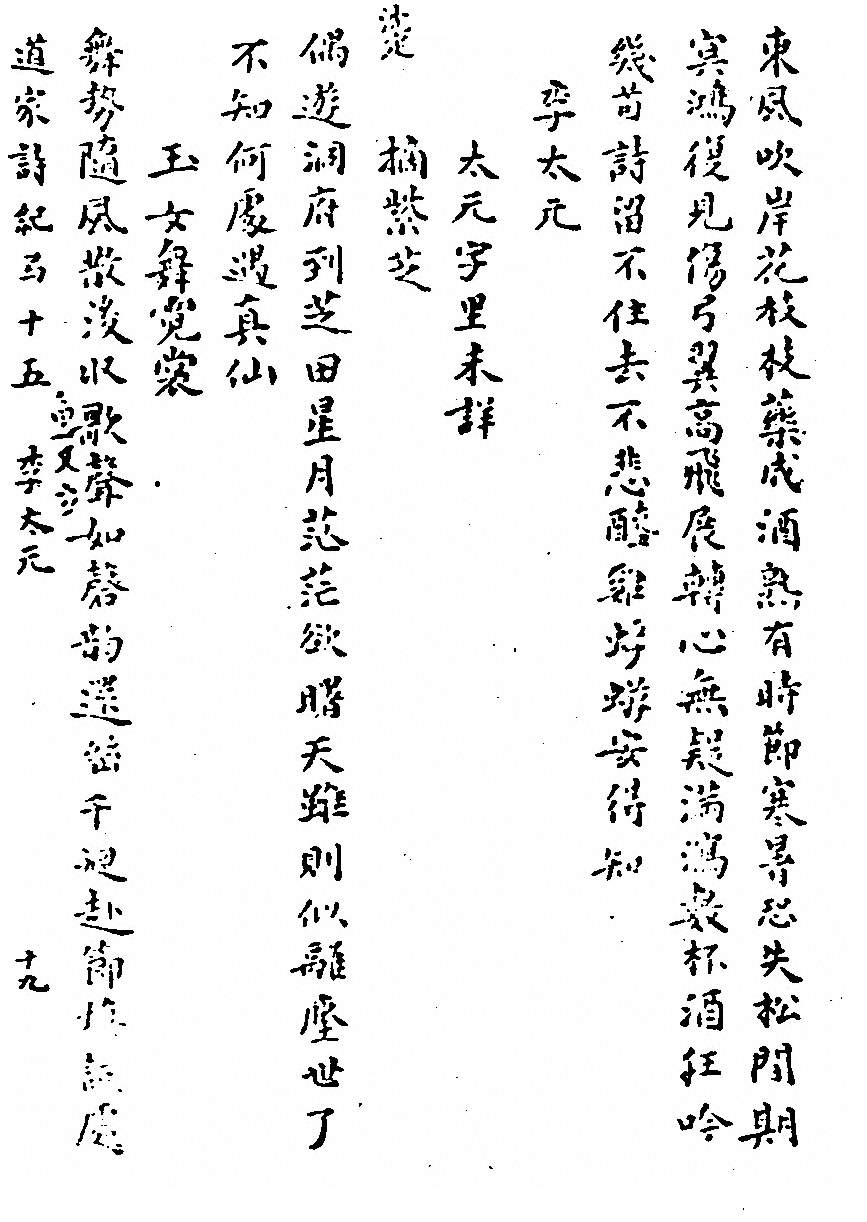 東風吹岸花枝枝藥成酒熟有時節寒暑恐失松閒期
冥鴻復見傷弓翼高飛展轉心無疑滿瀉數杯酒狂吟
幾首詩留不住去不悲醯雞蜉蝣安得知
李太元
太元字里未詳
摘紫芝
偶遊洞府到芝田星月茫茫欲曙天雖則似離塵世了
不知何處遇真仙
玉女舞霓裳
舞勢隨風散復收歌聲如磬韻還幽千迴赴節填詞處
道家詩紀弓十五 魚又玄 李太元 十九